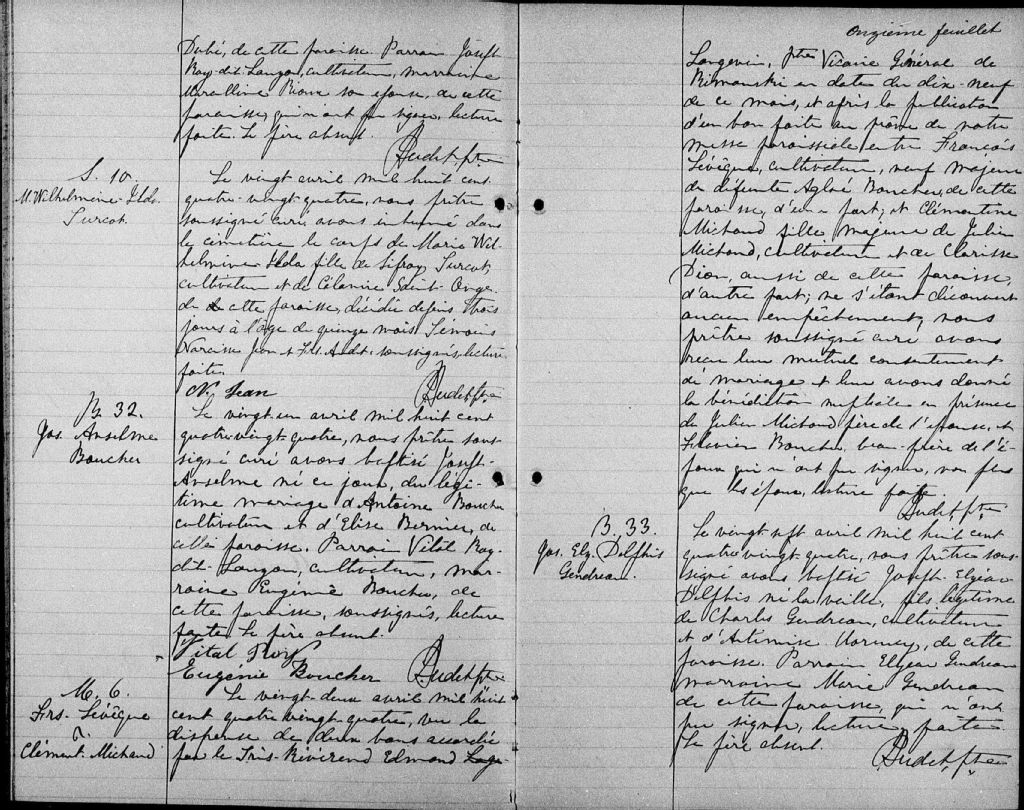 Dubé, de cette paroisse. Parrain Joseph
Roy-dit-Lauzon, cultivateur, marraine
Rioux son épouse, de cette
paroisse, qui n'ont pu signer, lecture
faite. Le père absent.
Audet, ptre
S. 10.
M. Wilhelmine-Ilda
Turcot.
Le vingt avril mil huit cent
quatre-vingt-quatre, nous prêtre
soussigné curé avons inhumé dans
le cimetière le corps de Marie Wil-
helmine Ilda fille de Sifroy Turcot,
cultivateur et de Célanire Saint-Onge.
de cette paroisse, décédée depuis trois
jours à l'âge de quinze mois. Témoins
Narcisse Jean et Frs. Audet. soussignés, lecture
faite.
N. Jean
Audet, ptre
B. 32.
Jos. Anselme
Boucher
Le vingt-un avril mil huit cent
quatre-vingt-quatre, nous prêtre sous-
signé curé avons baptisé Joseph-
Anselme né ce jour, du légi-
time mariage d'Antoine Boucher
cultivateur et d'Elise Bernier, de
cette paroisse. Parrain Vital Roy-
dit-Lauzon, cultivateur, mar-
raine Eugénie Boucher, de
cette paroisse, soussignés, lecture
faite. Le père absent.
Vital Roy
Eugénie Boucher
Audet, ptre
M. 6.
Frs. Lévêque
&
Clément. Michaud
Le vingt-deux avril mil huit
cent quatre vingt-quatre, vu la
dispense de deux bans accordée
par le Très-Révérend Edmond Lange-
onzième feuillet
Langevin, ptre Vicaire Général de
Rimouski en date du dix-neuf
de ce mois, et après la publication
d'un ban faite au prône de notre
messe paroissiale entre François
Lévêque, cultivateur, veuf majeur
de défunte Aglaé Boucher, de cette
paroisse, d'une part; et Clémentine
Michaud fille majeure de Julien
Michaud, cultivateur et de Clarisse
Dion, aussi de cette paroisse,
d'autre part; ne s'étant découvert
aucun empêchement, nous
prêtre soussigné curé avons
reçu leur mutuel consentement
de mariage et leur avons donné
la bénédiction nuptiale en présence
de Julien Michaud père de l'épouse, et
Boucher. beau-frère de l'é-
poux qui n'ont pu signer, non plus
que les époux, lecture faite.
Audet, ptre
B. 33.
Jos. Elz. Delphis
Gendreau.
Le vingt-sept avril mil huit cent
quatre-vingt-quatre, nous prêtre sous-
signé avons baptisé Joseph-Elzéar
Delphis né la veille, fils légitime
de Charles Gendreau, cultivateur
et d'Artimise, de cette
paroisse. Parrain Elzéar Gendreau
marraine Marie Gendreau
de cette paroisse, qui n'ont
pu signer, lecture faite.
Le père absent.
Audet, ptre